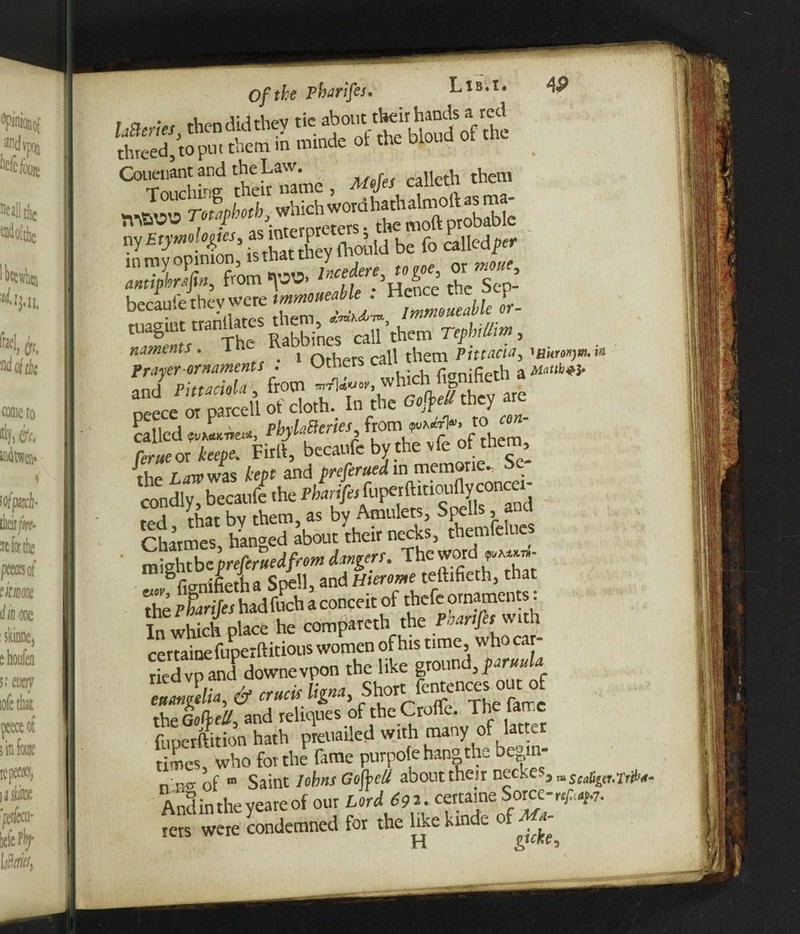 Of the Pharises. LIB.I. 49
lacteries, then did they tie about their hands a red
threed, to put them in minde of the bloud of the
Couenant and the Law.
Touching their name, Moses calleth them
טטפות Totaphoth, which word hath almost as ma-
ny Etymologies, as interpreters; the most probable
in my opinion, is that they should be so called per
antiphrasin, from טטף, Incedere, to goe, or moue,
because they were immoueable: Hence the Sep-
tuagint translates them, ἀσάλευτα, Immoueable or-
naments. The Rabbines call them Tephillim,
Prayer-ornaments: l Others call them Pittacia,
l Hieronym. in
and Pittaciola, from πιττάκιον, which signifieth a
Matth 23.
peece or parcell of cloth. In the Gospell they are
called φυλακτήεια, Phylacteries, from φυλάττω, to con-
serue or keepe. First, because by the vse of them,
the Law was kept and preserued in memorie. Se-
condly, because the Pharises superstitiously concei-
ted, that by them, as by Amulets, Spells, and
Charmes, hanged about their necks, themselues
might be preserued from dangers. The word φυλακτή-
ειον, signifieth a Spell, and Hierome testifieth, that
the Pharises had such a conceit of these ornaments:
In which place he compareth the Pharises with
certaine superstitious women of his time, who car-
ried vp and downe vpon the like ground, paruula
euangelia, & crucis ligna, Short sentences out of
the Gospell, and reliques of the Crosse. The same
superstition hath preuailed with many of latter
times, who for the same purpose hang the begin-
ning of m Saint Iohns Gospell about their neckes,
m Scaliger. Trihæ-
And in the yeare of our Lord 692. certaine Sorce-
res. cap.7.
rers were condemned for the like kinde of Ma-
H gicke,
opinion of
and vpon
these foure
end of the
bee when
13. 11.
&c.
nd of the
come to
&c.
of parch-
their fore-
re for the
peeces of
e it in one
d in one
skinne,
e housen
s: euery
ose that
peece of
s in foure
re peeces,
a skinne
persecu-
hese Phy-
lacteries,